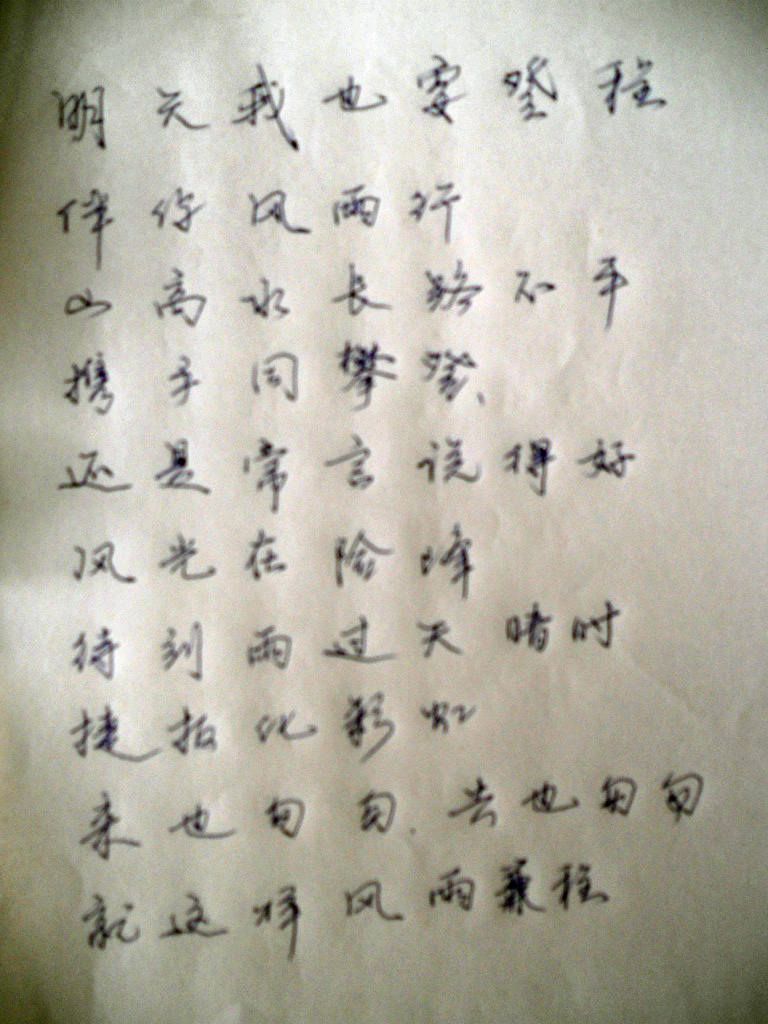 明天我也要登程
伴你风雨行
山高水长路不平
携手同攀登
还是常言说得好
风光在险峰
待到雨过天晴时
捷报化彩虹
来也匆匆.去也匆匆
就这样风雨兼程